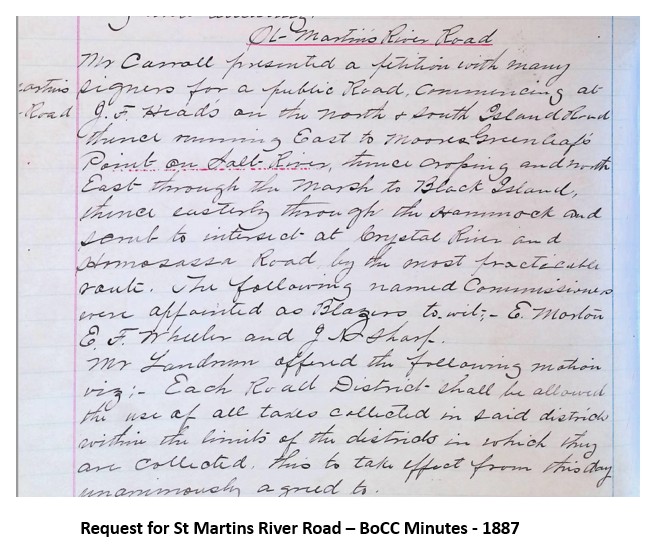 St Martins River Road
Mr Carroll presented a petition with many
signers for a public Road, Commencing at
J. F. Heads on the north & South Island Road
thence running East to Moores Greenleafs
Point on Salt River, thence crossing and north
East through the Marsh to Black Island,
thence easterly through the Hammock and
scrub to intersect at Crystal River and
Homosassa Road by the most practicable
route. The following named Commissioners
were appointed as Blazers to.wit;- E. Morton
E. F. Wheeler and J N Sharp.
Mr Landrum offered the following motion
viz;- Each Road District shall be allowed
the use of all taxes collected in said district
within the limits of the districts in which they
are collected. this to take effect from this day
unanimously agreed to.
artins
Road
Request for St Martins River Road – BoCC Minutes - 1887